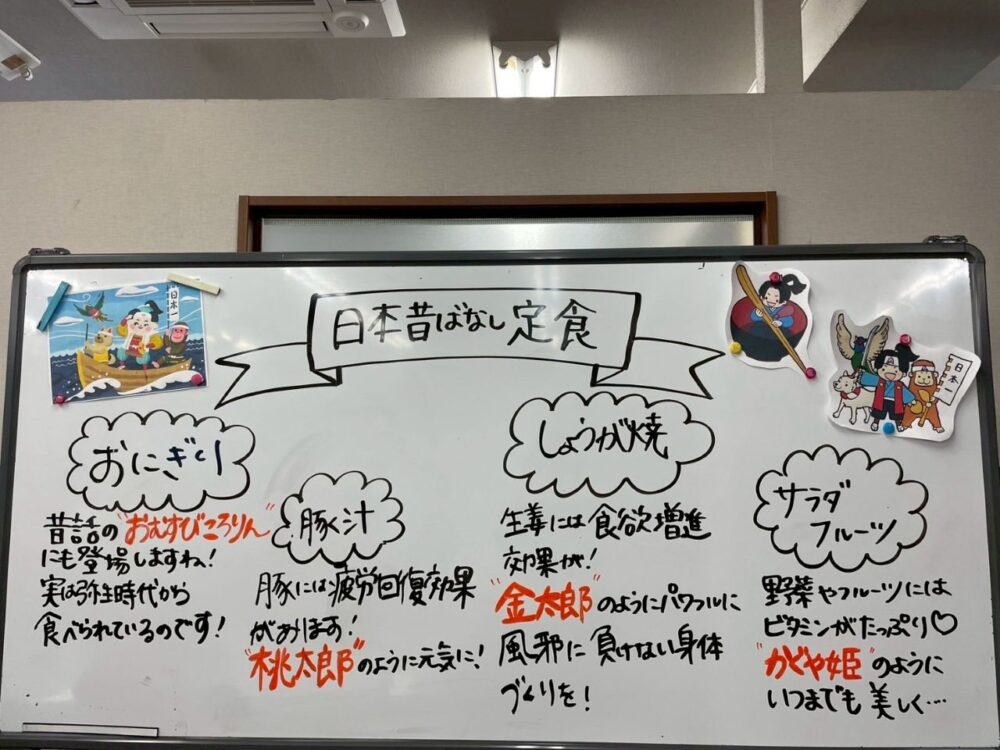 日本昔ばなし定食
日本一
日本一
おにぎり
昔話の"おむすびころりん"
にも登場しますね!
実は弥生時代から
食べられているのです!
豚汁
豚には疲労回復効果
があります!
"桃太郎"のように元気に!
しょうが焼
生姜には食欲増進
効果が!
"金太郎"のようにパワフルに
風邪に負けない身体
づくりを!
サラダ
フルーツ
野菜やフルーツには
ビタミンがたっぷり♡
"かぐや姫"のように
いつまでも美しく…